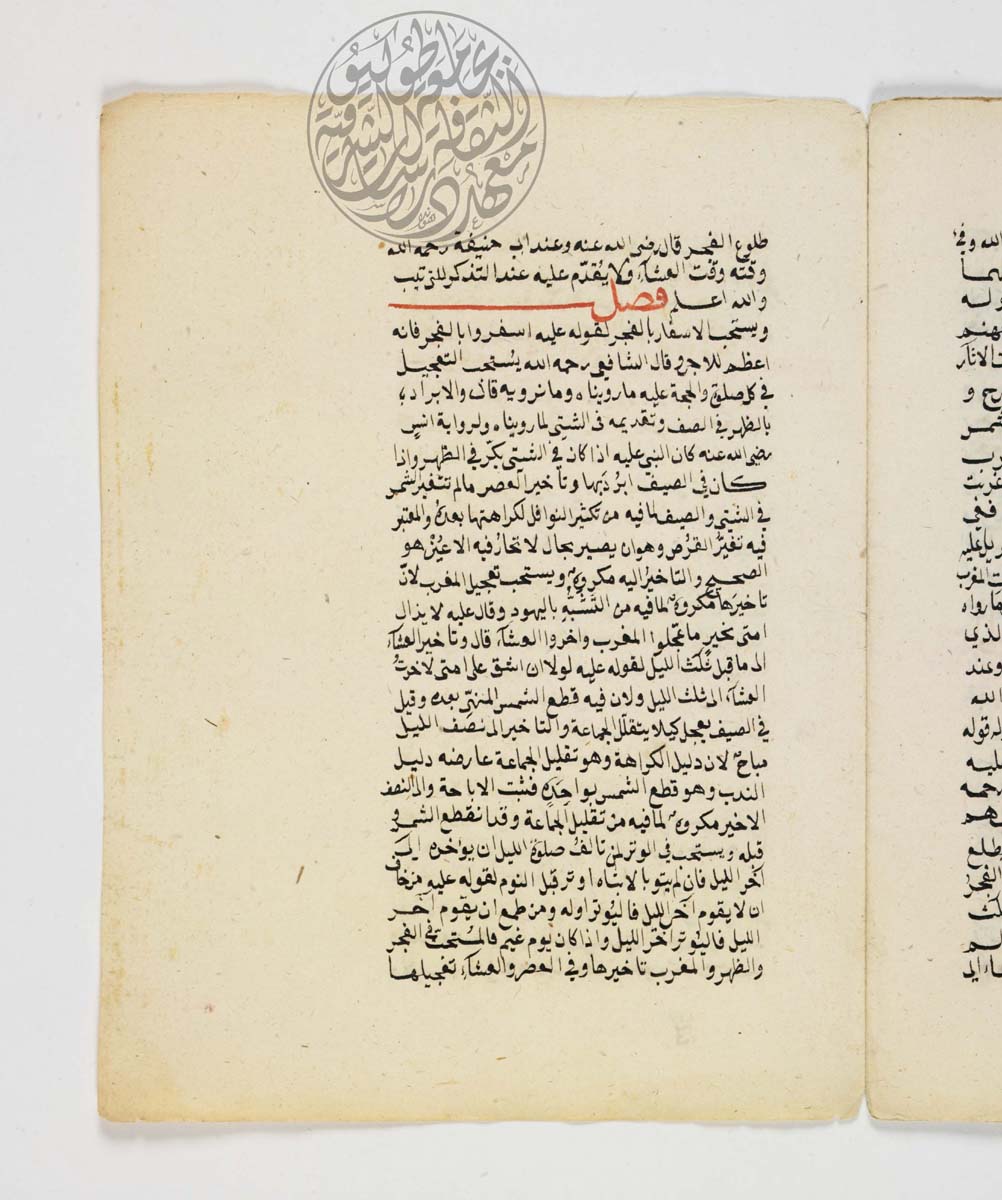 طلوع الفجر قال رضى الله عنه وعند ابى حنيفة رحمه الله
وقته وقت العشآء ولا يُقدّم عليه عند التذكر للترتيب
والله اعلم فصل
ويستحب الاسفار بالفجر لقوله عليه اسفروا بالفجر فانه
اعظم للاجر وقال الشافعى رحمه الله يُستحب التعجيل
فى كل صلوة والحجة عليه ما رويناه وما نرويه قال والابراد
بالظهر فى الصيف وتقديمه فى الشتى لما رويناه ولرواية انسٍ
رضى الله عنه كان النبى عليه اذا كان فى الشتى بكّر فى الظهر واذا
كان فى الصيف ابرُدَبها وتأخير العصر مالم تتغير الشمس
فى الشتى والصيف لما فيه من تكثير النوافل لكراهتها بعدهُ والمعتبر
فيه تغيّرُ القُرْص وهو ان يصير بحال لا تحار فيه الاعيُنْ هو
الصحيح والتاخيرُ اليه مكروهٌ ويستحب تعجيل المغرب لانّ
تاخيرَها مكروهٌ لما فيه من التَشَبُّهِ باليهود وقال عليه لا يزال
امتى بخيرٍ ما عجّلوا المغرب واخروا العشآء قال وتاخير العشآء
الى ما قبل ثُلُث الليل لقوله عليه لولا ان اشق على امتى لاخرتُ
العشآء الى ثلث الليل ولان فيه قطع السَّمر المنهىّ بعده وقيل
فى الصيف يعجل كيلا يتقلّل الجماعة والتاخير الى نصف الليل
مباحٌ لان دليل الكراهة وهو تقليل الجماعة عارضه دليل
الندب وهو قطع السمر بواحِدَه فثبت الاباحة والى النصف
الاخير مكروهٌ لما فيه من تقليل الجماعة وقد انقطع السمر
قبله ويستحب فى الوتر لمن تالف صلوة الليل ان يواخره الى
آخر الليل فان لم يتو بالانتباه اوتر قبل النوم لقوله عليه من خاف
ان لا يقوم آخر الليل فاليُوتر اوله ومن طمع ان يقوم آخر
الليل فاليُوتر آخر الليل واذا كان يوم غيم فالمُستحبُّ فى الفجر
والظهر والمغرب تاخيرها وفى العصر والعشآء تعجيلها